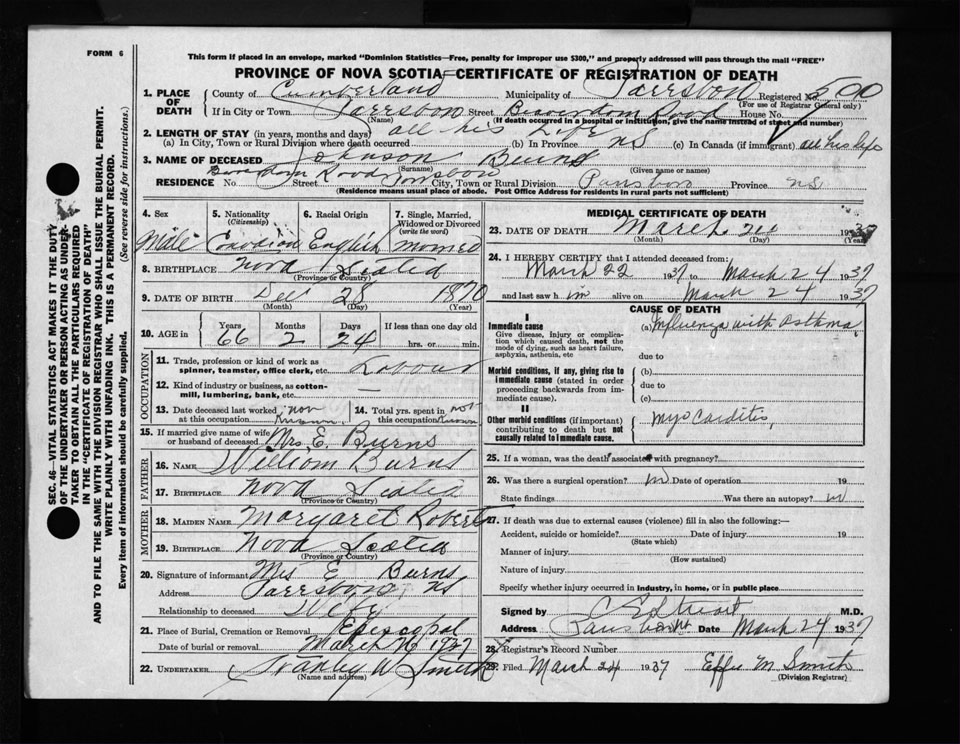 FORM 6
This form if placed in an envelope, marked "Dominion Statistics—Free, penalty for improper use $300," and properly addressed will pass through the mail "FREE"
PROVINCE OF NOVA SCOTIA—CERTIFICATE OF REGISTRATION OF DEATH
1. PLACE OF DEATH
County of Cumberland Municipality of Parrsboro Registered No. 500
(For use of Registrar General only)
If in City or Town Parrsboro Street Road House No.
(Name) (If death occurred in a hospital or institution, give the name instead of street and number)
2. LENGTH OF STAY (in years, months and days) all his Life
(a) In City, Town or Rural Division where death occurred (b) In Province NS (c) In Canada (if immigrant) all his life
3. NAME OF DECEASED Johnson Burns
(Surname) (Given name or names)
RESIDENCE No. Road Street Parrsboro City, Town or Rural Division Parrsboro Province NS
(Residence means usual place of abode. Post Office Address for residents in rural parts not sufficient)
4. Sex Male
5. Nationality (Citizenship) Canadian
6. Racial Origin English
7. Single, Married, Widowed or Divorced (write the word) Married
8. BIRTHPLACE Nova Scotia
(Province or Country)
9. DATE OF BIRTH Dec 28 1870
(Month) (Day) (Year)
10. AGE in Years Months Days If less than one day old
66 2 24 hrs. or min.
OCCUPATION
11. Trade, profession or kind of work as spinner, teamster, office clerk, etc. Labour
12. Kind of industry or business, as cotton-mill, lumbering, bank, etc. —
13. Date deceased last worked at this occupation not known
14. Total yrs. spent in this occupation not known
15. If married give name of wife or husband of deceased Mrs E. Burns
FATHER
16. NAME William Burns
17. BIRTHPLACE Nova Scotia
(Province or Country)
MOTHER
18. MAIDEN NAME Margaret Roberts
19. BIRTHPLACE Nova Scotia
(Province or Country)
20. Signature of informant Mrs E Burns
Address Parrsboro, NS
Relationship to deceased Wife
21. Place of Burial, Cremation or Removal Episcopal
Date of burial or removal March 26 1937
22. UNDERTAKER Stanley W Smith
(Name and address)
MEDICAL CERTIFICATE OF DEATH
23. DATE OF DEATH March 24 1937
(Month) (Day) (Year)
24. I HEREBY CERTIFY that I attended deceased from:
March 22 1937 to March 24 1937
and last saw h im alive on March 24 1937
CAUSE OF DEATH
I
Immediate cause
Give disease, injury or complication which caused death, not the mode of dying, such as heart failure, asphyxia, asthenia, etc
(a) Influenza with Asthma
due to
Morbid conditions, if any, giving rise to immediate cause (stated in order proceeding backwards from immediate cause).
(b)
due to
(c)
II
Other morbid conditions (if important) contributing to death but not causally related to immediate cause.
Myocarditis,
25. If a woman, was the death associated with pregnancy?
26. Was there a surgical operation? Date of operation 19
State findings Was there an autopsy?
27. If death was due to external causes (violence) fill in also the following:—
Accident, suicide or homicide? Date of injury 19
(State which)
Manner of injury
(How sustained)
Nature of injury
Specify whether injury occurred in industry, in home, or in public place
Signed by M.D.
Address Parrsboro NS Date March 24 1937
28. Registrar's Record Number
29. Filed March 24 1937 Effie M Smith
(Division Registrar)
SEC. 46—VITAL STATISTICS ACT MAKES IT THE DUTY OF THE UNDERTAKER OR PERSON ACTING AS UNDERTAKER TO OBTAIN ALL THE PARTICULARS REQUIRED IN THE "CERTIFICATE OF REGISTRATION OF DEATH"
AND TO FILE THE SAME WITH THE DIVISION REGISTRAR WHO SHALL ISSUE THE BURIAL PERMIT.
WRITE PLAINLY WITH UNFADING INK. THIS IS A PERMANENT RECORD.
Every item of information should be carefully supplied. (See reverse side for instructions.)